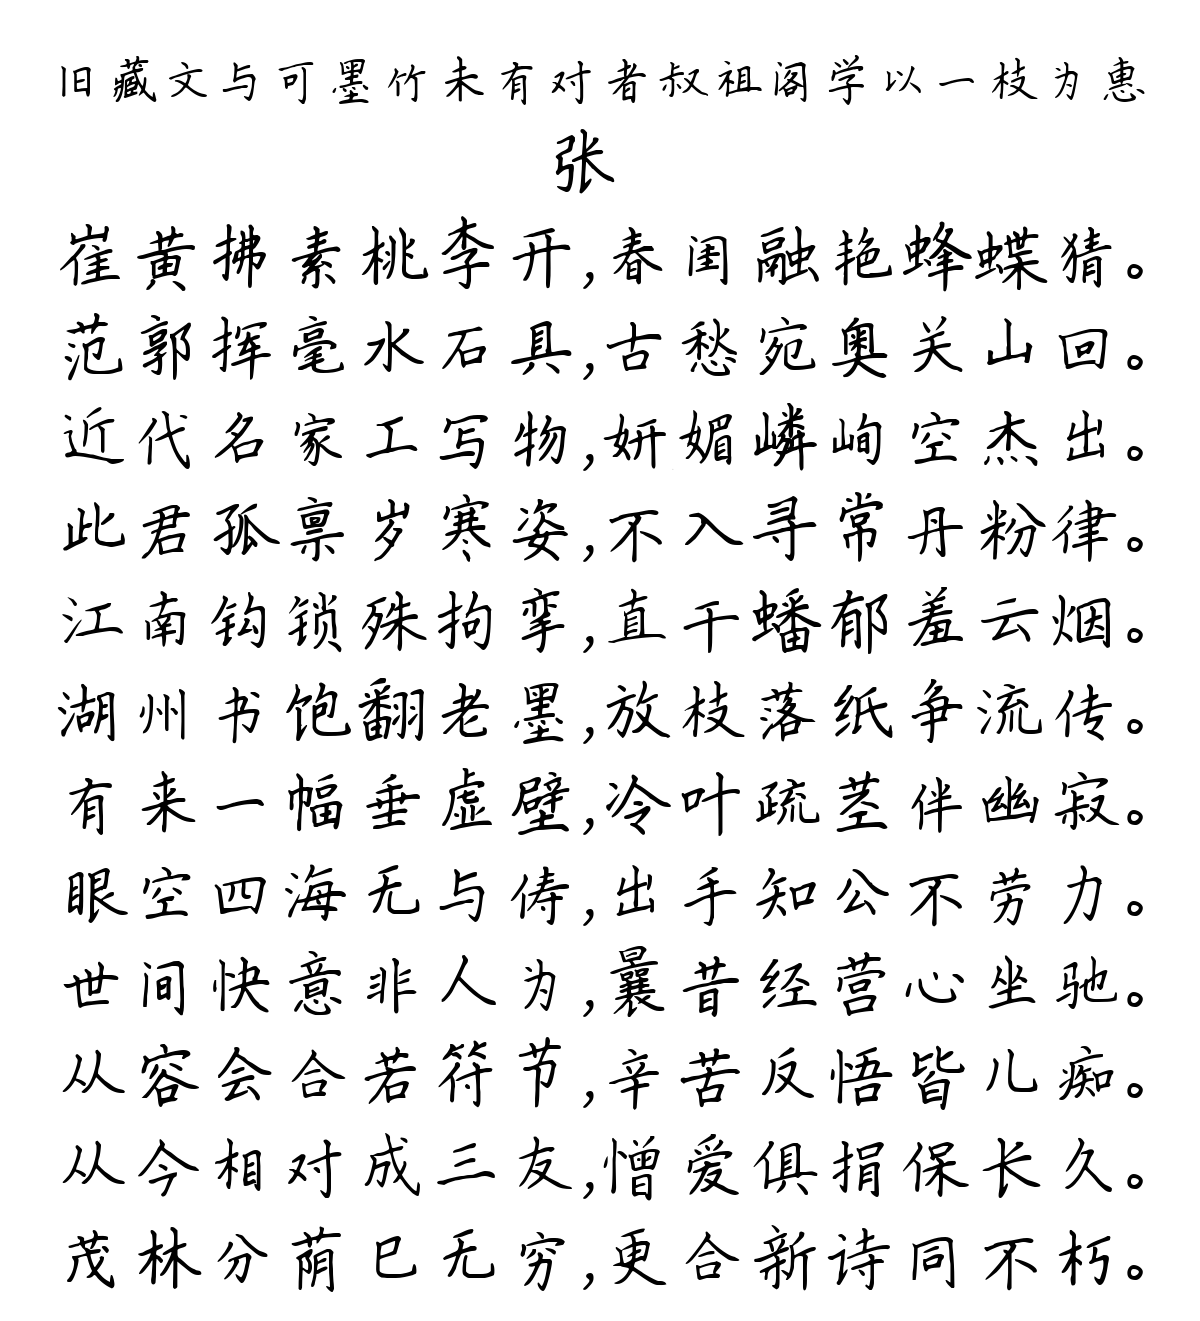 旧藏文与可墨竹未有对者叔祖阁学以一枝为惠
张
崔黄拂素桃李开,春闺融艳蜂蝶猜。
范郭挥毫水石具,古愁宛奥关山回。
近代名家工写物,妍媚嶙峋空杰出。
此君孤禀岁寒姿,不入寻常丹粉律。
江南钩锁殊拘挛,直干蟠郁羞云烟。
湖州书饱翻老墨,放枝落纸争流传。
有来一幅垂虚壁,冷叶疏茎伴幽寂。
眼空四海无与俦,出手知公不劳力。
世间快意非人为,曩昔经营心坐驰。
从容会合若符节,辛苦反悟皆儿痴。
从今相对成三友,憎爱俱捐保长久。
茂林分荫巳无穷,更合新诗同不朽。